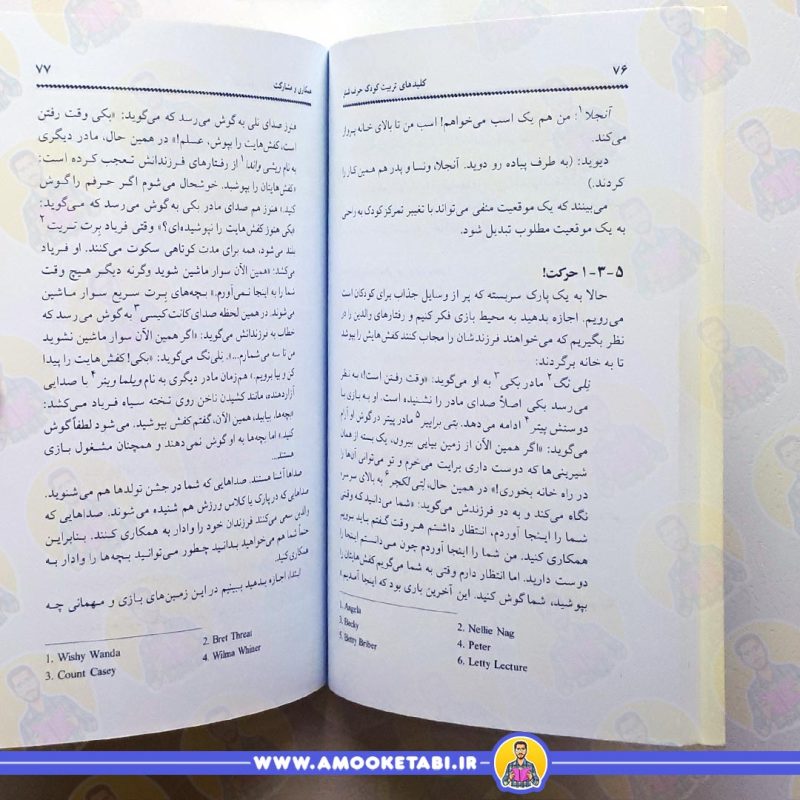 ۷۶
کلیدهای تربیت کودک حرف‌شنو
آنجلا۱: من هم یک اسب می‌خواهم! اسب من تا بالای خانه پرواز
می‌کند.
دیوید: (به طرف پیاده رو دوید. آنجلا، ونسا و پدر هم همین کار را
کردند.)
می‌بینند که یک موقعیت منفی می‌تواند با تغییر تمرکز کودک به راحتی
به یک موقعیت مطلوب تبدیل شود.
۵-۳-۱ حرکت!
حالا به یک پارک سربسته که پر از وسایل جذاب برای کودکان است
می‌رویم. اجازه بدهید به محیط بازی فکر کنیم و رفتارهای والدین را در
نظر بگیریم که می‌خواهند فرزندشان را مجاب کنند کفش‌هایش را بپوشد
تا به خانه برگردند:
نِلی نگ۲ مادر بکی۳ به او می‌گوید: «وقت رفتن است!» به نظر
می‌رسد بکی اصلاً صدای مادر را نشنیده است. او به بازی با
دوستش پیتر۴ ادامه می‌دهد. بتی برایبر۵ مادر پیتر در گوش او آرام
می‌گوید: «اگر همین الآن از زمین بیایی بیرون، یک بسته از همان
شیرینی‌ها که دوست داری برایت می‌خرم و تو می‌توانی آن‌ها را
در راه خانه بخوری!» در همین حال، لِتی لکچر۶ به بالای سرش
نگاه می‌کند و به دو فرزندش می‌گوید: «شما می‌دانید که وقتی
شما را اینجا آوردم، انتظار داشتم هر وقت گفتم بیاید برویم
همکاری کنید. من شما را اینجا آوردم چون می‌دانستم اینجا را
دوست دارید. اما انتظار دارم وقتی به شما می‌گویم کفش‌هایتان را
بپوشید، شما گوش کنید. این آخرین باری بود که اینجا آمدیم.»
1. Angela
2. Nellie Nag
3. Becky
4. Peter
5. Betty Briber
6. Letty Lecture
۷۷
همکاری و مشارکت
هنوز صدای نلی به گوش می‌رسد که می‌گوید: «بکی وقت رفتن
است، کفش‌هایت را بپوش، عسلم!» در همین حال، مادر دیگری
به نام ویشی واندا۱ از رفتارهای فرزندانش تعجب کرده است:
«کفش‌هایتان را بپوشید. خوشحال می‌شوم اگر حرفم را گوش
کنید.» هنوز هم صدای مادر بکی به گوش می‌رسد که می‌گوید:
«بکی هنوز کفش‌هایت را نپوشیده‌ای؟» وقتی فریاد بِرت تریت۲
بلند می‌شود، همه برای مدت کوتاهی سکوت می‌کنند. او فریاد
می‌کشد: «همین الآن سوار ماشین شوید وگرنه دیگر هیچ وقت
شما را به اینجا نمی‌آورم.» بچه‌های بِرت سریع سوار ماشین
می‌شوند. در همین لحظه صدای کانت کیسی۳ به گوش می‌رسد که
خطاب به فرزندانش می‌گوید: «اگر همین الآن سوار ماشین نشوید
من تا سه می‌شمارم...». نِلی‌نگ می‌گوید: «بکی! کفش‌هایت را پیدا
کن و بیا برویم.» هم‌زمان مادر دیگری به نام ویلما وینر۴ با صدایی
آزاردهنده، مانند کشیدن ناخن روی تخته سیاه فریاد می‌کشد:
«بچه‌ها، بیایید، همین الآن، گفتم کفش بپوشید. می‌شود لطفاً گوش
کنید.» اما بچه‌ها به او گوش نمی‌دهند و همچنان مشغول بازی
هستند...
صداها آشنا هستند. صداهایی که شما در جشن تولدها هم می‌شنوید.
صداهایی که در پارک یا کلاس ورزش هم شنیده می‌شوند. صداهایی که
والدین سعی می‌کنند فرزندان خود را وادار به همکاری کنند. بنابراین
حتماً شما هم می‌خواهید بدانید چطور می‌توانید بچه‌ها را وادار به
همکاری کنید.
ابتدا، اجازه بدهید ببینیم در این زمین‌های بازی و مهمانی چه
1. Wishy Wanda
2. Bret Threat
3. Count Casey
4. Wilma Whiner
WWW.AMOOKETABI.IR